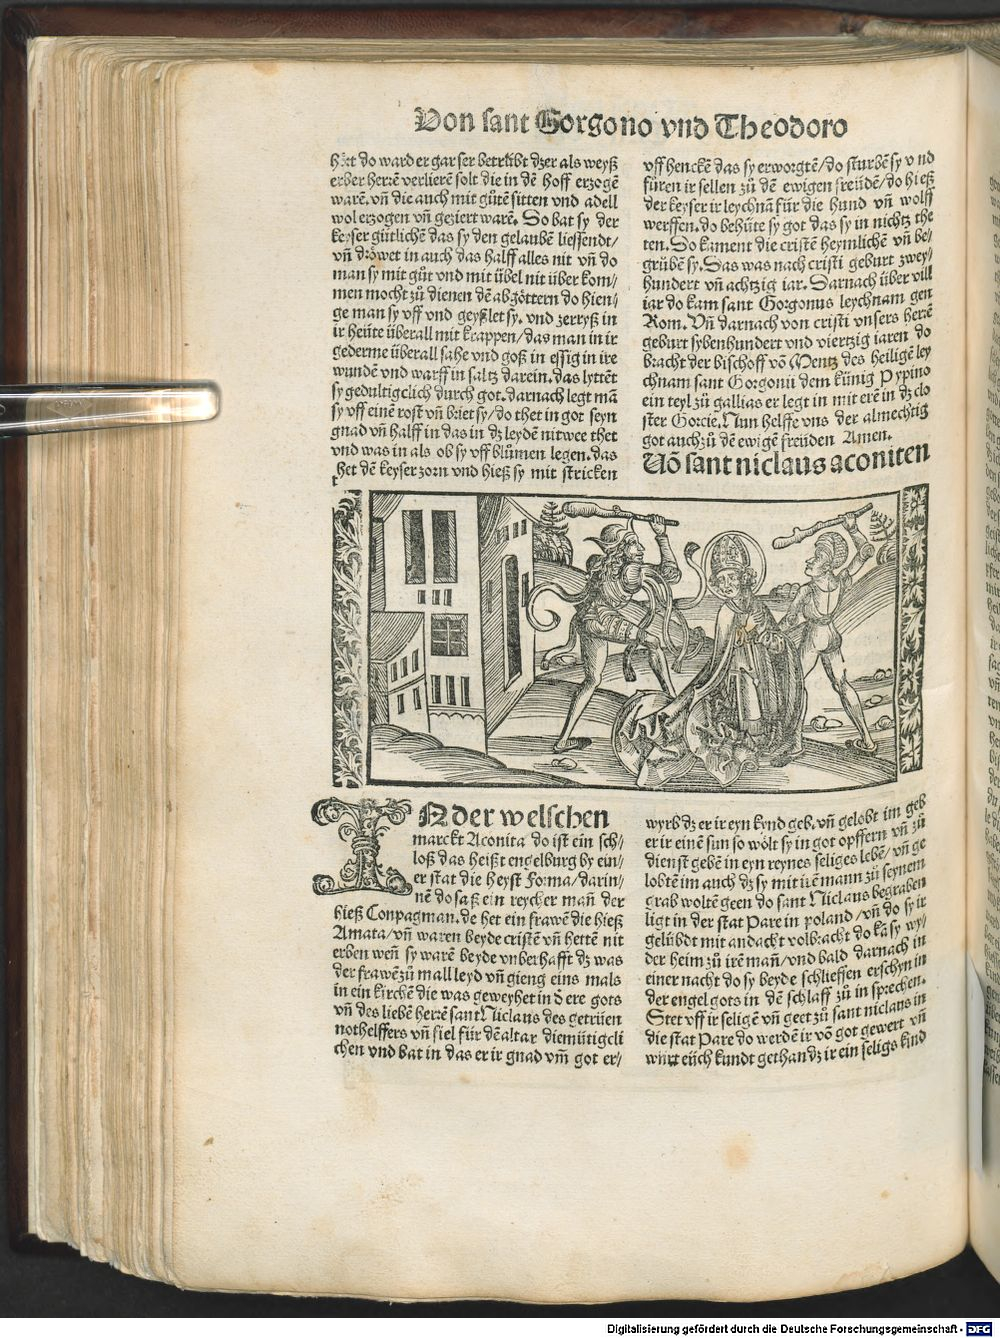 Von sant Gorgono vnd Theodoro
hett do ward er gar ser betrübt dz er als weyß
erber herrē verlierē solt die in dē hoff erzogē
warē, vñ die auch mit gůtē sitten vnd adell
wol erzogen vñ geziert warē. So bat sy der
keyser gütlichē das sy den gelaubē liessendt/
vñ dröwet in auch das halff alles nit vñ do
man sy mit gůt vnd mit übel nit über kom/
men mocht zů dienen dē abgöttern do hien/
ge man sy vff vnd geyßlet sy. vnd zerryß in
ir heüte überall mit krappen/das man in ir
gederme überall sahe vnd goß in essig in ire
wundē vnd warff in saltz darein. das lyttēt
sy gedultigclich durch got. darnach legt mā
sy vff einē rost vñ briet sy/do thet in got seyn
gnad vñ halff in das in dz leydē nit wee thet
vnd was in als ob sy vff blůmen legen. das
thet dē keyser zorn vnd hieß sy mit stricken
vff henckē das sy erworgtē/do sturbē sy vnd
fůren ir sellen zů dē ewigen freüdē/do hieß
der keyser ir leychnā für die hund vñ wolff
werffen. do behüte sy got das sy in nichtz the
ten. So kament die cristē heymlichē vñ be/
grůbē sy. Das was nach cristi geburt zwey/
hundert vñ achtzig iar. Darnach über vill
iar do kam sant Gorgonus leychnam gen
Rom. Vñ darnach von cristi vnsers herrē
geburt sybenhundert vnd viertzig iaren do
bracht der bischoff vō Mentz des heiligē ley
chnam sant Gorgonii dem künig Pypino
ein teyl zů gallias er legt in mit erē in dz clo
ster Gorcie. Nun helffe vns der almechtig
got auch zů dē ewigē freüden Amen.
Vō sant niclaus aconiten
IN der welschen
marckt Aconita do ist ein sch/
loß das heißt engelburg by ein/
er stat die heyst Forma/darin/
nē do saß ein reycher mañ der
hieß Conpagman. de het ein frawē die hieß
Amata/vñ waren beyde cristē vñ hettē nit
erben weñ sy warē beyde vnberhafft dz was
der frawē zů mall leyd vñ gieng eins mals
in ein kirchē die was geweyhet in d ere gots
vñ des liebē herrē sant Niclaus des getrüen
nothelffers vñ fiel für dē altar diemütigcli
chen vnd bat in das er ir gnad vm̄ got er/
wyrb dz er ir eyn kynd geb. vñ gelobt im geb
er ir einē sun so wölt sy in got opffern vñ zů
dienst gebē in eyn reynes seliges lebē/vñ ge
lobtē im auch dz sy mit irē mann zů seynem
grab woltē geen do sant Niclaus begraben
ligt in der stat Pare in poland/vñ do sy ir
gelübdt mit andacht volbracht do kā sy wy/
der heim zů irē mañ/vnd bald darnach in
einer nacht do sy beyde schlieffen erschyn in
der engel gots in dē schlaff zů in sprechen.
Stet vff ir seligē vñ geet zů sant niclaus in
die stat Pare do werdē ir vō got gewert vñ
würt eüch kundt gethan dz ir ein seligs kind
Digitalisierung gefördert durch die Deutsche Forschungsgemeinschaft - DFG